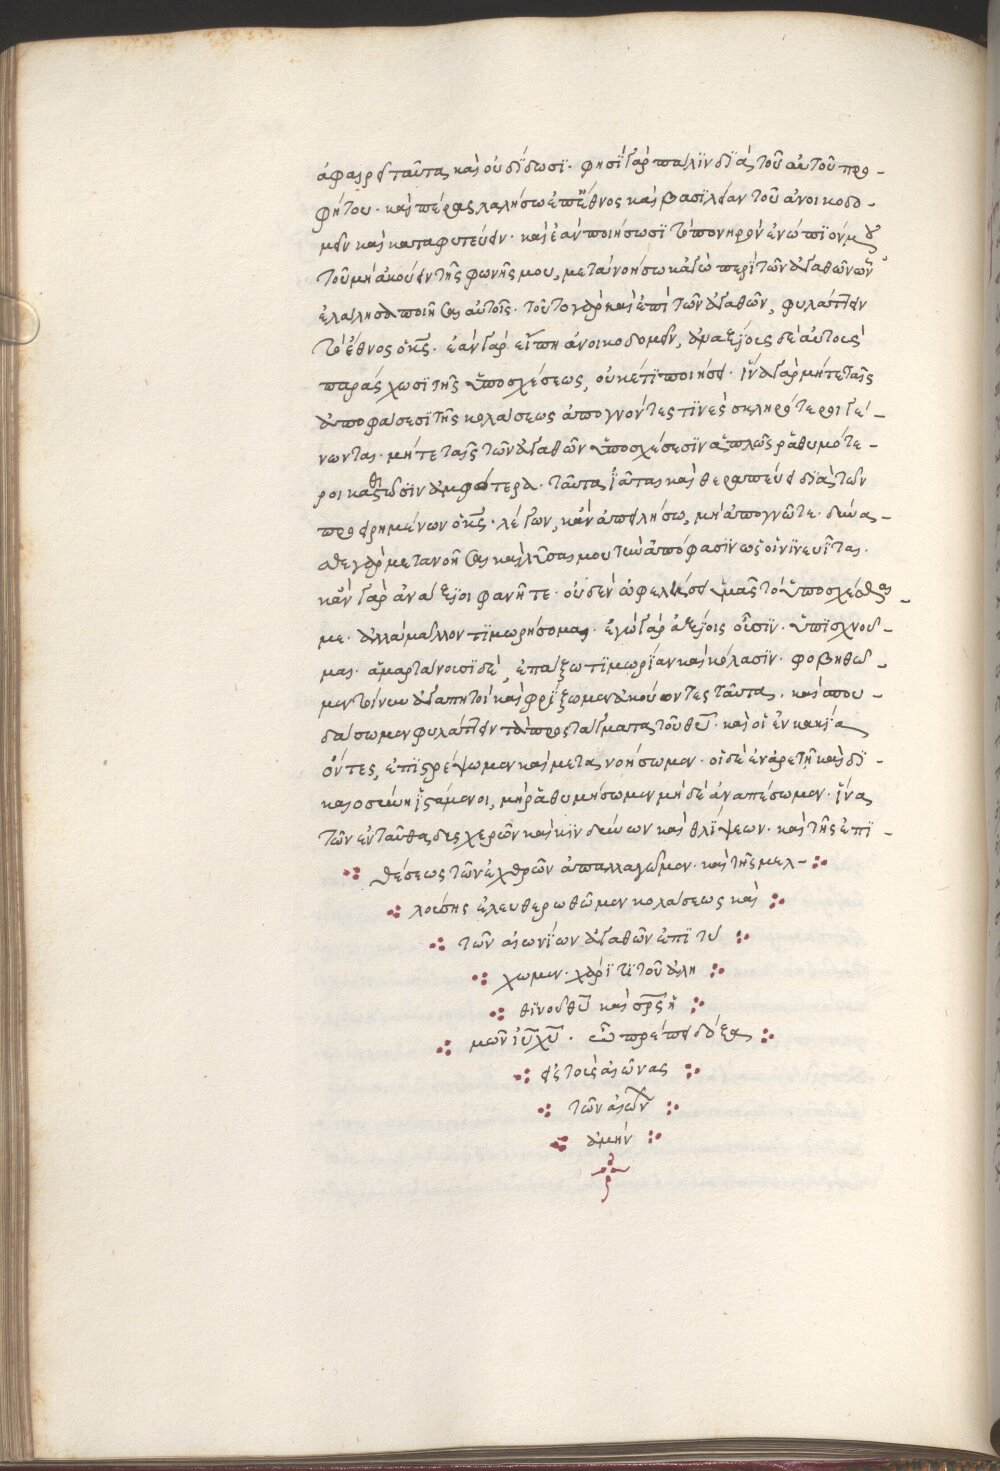 ἀφαιρεῖται ταῦτα καὶ οὐ δίδωσι. φησὶ γὰρ πάλιν διὰ τοῦ αὐτοῦ προ-
φήτου. καὶ πέρας λαλήσω ἐπ' ἔθνος καὶ βασιλείαν τοῦ ἀνοικοδο-
μεῖν καὶ καταφυτεύειν. καὶ ἐὰν ποιήσωσι τὸ πονηρὸν ἐνώπιόν μου
τοῦ μὴ ἀκούειν τῆς φωνῆς μου, μετανοήσω κἀγὼ περὶ τῶν ἀγαθῶν ὧν
ἐλάλησα ποιῆσαι αὐτοῖς. τοῦτο γὰρ καὶ ἐπὶ τῶν ἀγαθῶν, φυλάττειν
τὸ ἔθνος. ἐὰν γὰρ εἴπῃ ἀνοικοδομεῖν, ἀναξίους δὲ αὐτοὺς
παράσχωσι τῆς ὑποσχέσεως, οὐκέτι ποιήσει. ἵνα γὰρ μήτε ταῖς
ἀποφάσεσι τῆς κολάσεως ἀπογνόντες τινὲς σκληρότεροι γέ-
νωνται. μήτε ταῖς τῶν ἀγαθῶν ὑποσχέσεσιν ἁπλῶς ῥαθυμότε-
ροι ἀμφότερα. ταῦτα ἰᾶται καὶ θεραπεύει διὰ τῶν
προειρημένων. λέγων, κἂν ἀπειλήσω, μὴ ἀπογνῶτε. δύνα-
σθε γὰρ μετανοῆσαι καὶ λῦσαί μου τὴν ἀπόφασιν ὡς οἱ νινευῖται.
κἂν γὰρ ἀνάξιοι φανῆτε. οὐδὲν ὠφελήσει ὑμᾶς τὸ ὑποσχέσθαι
με. ἀλλὰ μᾶλλον τιμωρήσομαι. ἐγὼ γὰρ ἀξίοις οὖσιν. ὑπισχνοῦ-
μαι. ἁμαρτάνουσι δὲ, ἐπάξω τιμωρίαν καὶ κόλασιν. φοβηθῶ-
μεν τοίνυν ἀγαπητοὶ καὶ φρίξωμεν ἀκούοντες ταῦτα. καὶ σπου-
δάσωμεν φυλάττειν τὰ προστάγματα τοῦ θεοῦ. καὶ οἱ ἐν κακίᾳ
ὄντες, ἐπιστρέψωμεν καὶ μετανοήσωμεν. οἱ δὲ ἐν ἀρετῇ καὶ δι-
καιοσύνῃ ἱστάμενοι, μὴ ῥαθυμήσωμεν μηδὲ ἀναπέσωμεν. ἵνα
τῶν ἐνταῦθα δυσχερῶν καὶ κινδύνων καὶ θλίψεων. καὶ τῆς ἐπι-
θέσεως τῶν ἐχθρῶν ἀπαλλαγῶμεν. καὶ τῆς μελ-
λούσης ἐλευθερωθῶμεν κολάσεως καὶ
τῶν αἰωνίων ἀγαθῶν ἐπιτύ
χωμεν. χάριτι τοῦ ἀλη
θινοῦ θυ καὶ σρς ἡ
μῶν ιυ χυ. ὧ πρέπει δόξα
εἰς τοὺς αἰῶνας
τῶν αἰών
ἀμήν